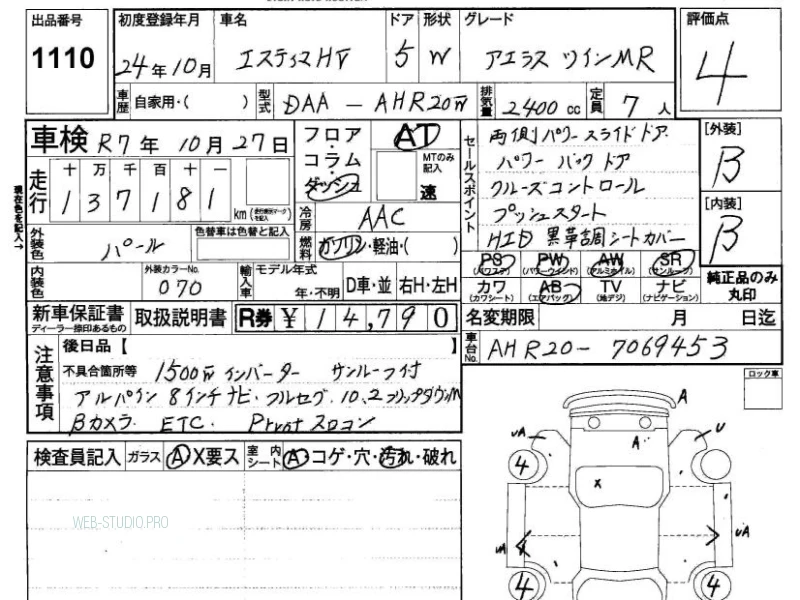 出品番号 初度登録年月 車名 ドア 形状 グレード 評価点
1110 24年10月 エスティマHV 5 W アエラス ツインMR 4
車歴 自家用・( ) 型式 DAA-AHR20W 排気量 2400cc 定員 7人
車検 R7年 10月 27日 フロア・コラム・ダッシュ AT MTのみ記入 速
セールスポイント 両側パワースライドドア
パワーバックドア
クルーズコントロール
プッシュスタート
HID 黒革調シートカバー
[外装] B
[内装] B
現在色を記入→
走行 十万千百十一
137181 km (走行表示マーク)を記入
冷房 AAC
外装色 パール 色替車は色替と記入 燃料 ガソリン・軽油・( )
PS (パワステ) PW (パワーウインド) AW (アルミホイル) SR (サンルーフ)
カワ (カワシート) AB (エアバッグ) TV (地デジ) ナビ (ナビゲーション)
純正品のみ丸印
内装色 外装カラーNo. 070 輸入車 モデル年式 年・不明 D車・並 右H・左H
新車保証書 ディーラー捺印あるもの 取扱説明書 R券 ¥14,790 名変期限 月 日迄
車台No. AHR20-7069453
注意事項 後日品【 】
不具合箇所等 1500W インバーター サンルーフ付
アルパイン 8インチナビ.フルセグ.10.2フリップダウンM
Bカメラ ETC.
ロック車
検査員記入 ガラス A X要ス 室内シート A コゲ・穴・汚れ・破れ
WEB-STUDIO.PRO
A
uA A U
4
x
uA uA
4 4